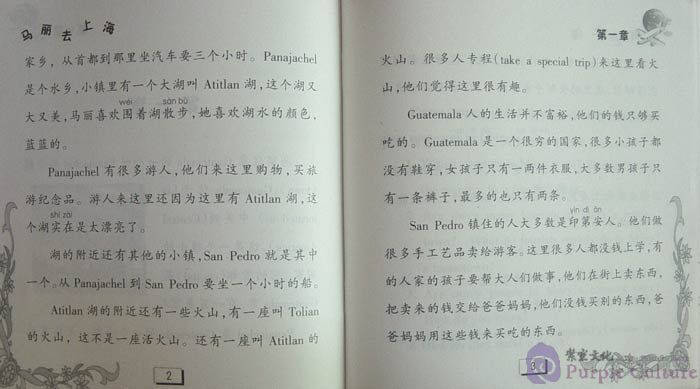 马丽去上海
家乡，从首都到那里坐汽车要三个小时。Panajachel
是个水乡，小镇里有一个大湖叫 Atitlan 湖，这个湖又
wéi sàn bù
大又美，马丽喜欢围着湖散步，她喜欢湖水的颜色，
蓝蓝的。
Panajachel 有很多游人，他们来这里购物，买旅
游纪念品。游人来这里还因为这里有 Atitlan 湖，这
shí zài
个湖实在是太漂亮了。
湖的附近还有其他的小镇，San Pedro 就是其中
一个。从 Panajachel 到 San Pedro 要坐一个小时的船。
Atitlan 湖的附近还有一些火山，有一座叫 Tolian
的火山，这不是一座活火山。还有一座叫 Atitlan 的
2
第一章
火山。很多人专程(take a special trip)来这里看火
山，他们觉得这里很有趣。
Guatemala 人的生活并不富裕，他们的钱只够买
吃的。Guatemala 是一个很穷的国家，很多小孩子都
没有鞋穿，女孩子只有一两件衣服，大多数男孩子只
有一条裤子，最多的也只有两条。
yìn dì ān
San Pedro 镇住的人大多数是印第安人。他们做
很多手工艺品卖给游客。这里很多人都没钱上学，有
的人家的孩子要帮大人们做事，他们在街上卖东西，
把卖来的钱交给爸爸妈妈，他们没钱买别的东西，爸
爸妈妈用这些钱来买吃的东西。
3
Purple Culture